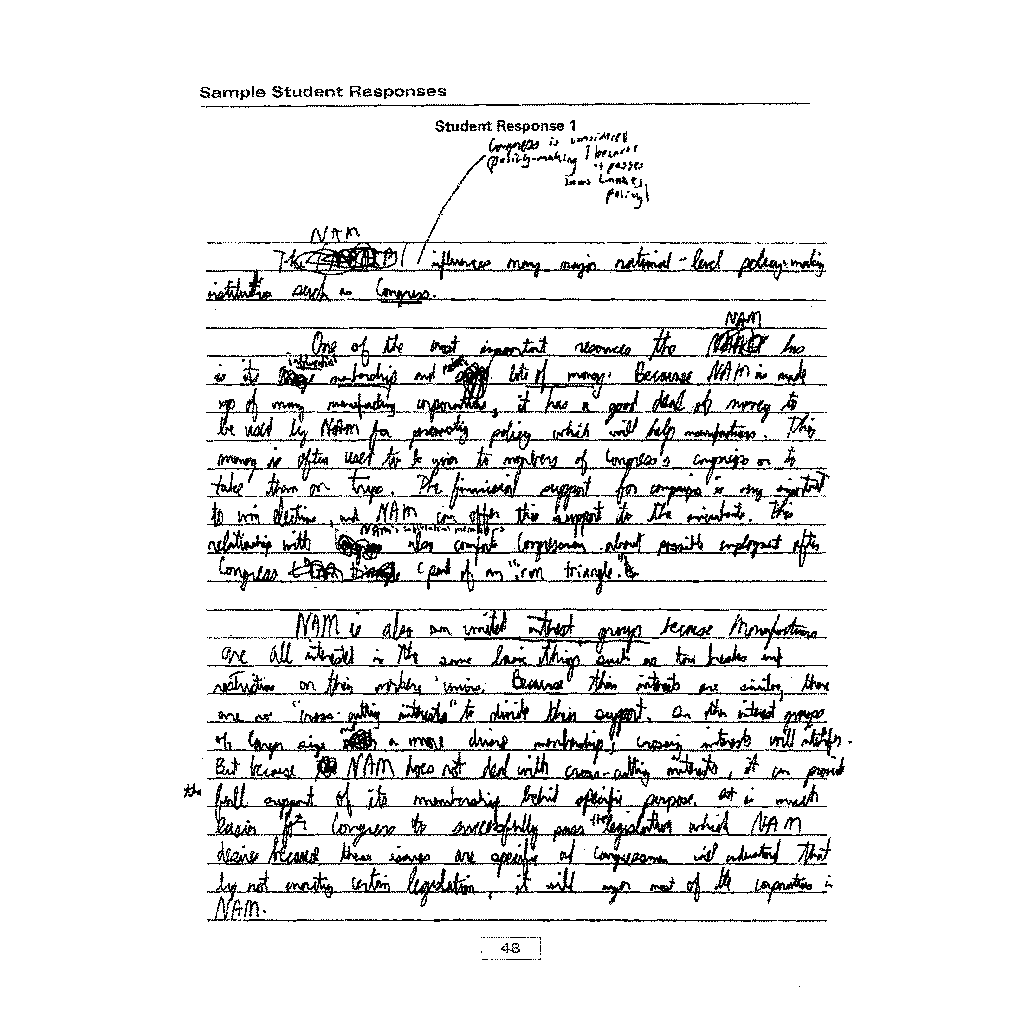 Sample Student Responses
Student Response 1
Congress is considered
policy-making because
it passes
laws (makes
policy)
NAM
The influences many major national-level policy-making
institutions such as Congress.
NAM
One of the most important resources the has
influential
is its membership and lots of money. Because NAM is made
up of many manufacting corporations, it has a good deal of money to
be used by NAM for promoting policy which will help manufactors. This
money is often used to be given to members of Congress's campaigns or to
take them on trips. The financial support for campaigns is very important
to win elections, and NAM can offer this support to the incumbents. This
NAM's influential members
relationship with also comforts Congressman about possible employment after
Congress (part of an "iron triangle."
NAM is also an united interest groups because Manufactors
are all interested in the same basic things such as tax breaks and
restrictions on their workers' unions. Because their interests are similar, there
are no "cross-cutting interests" to divide their support. In other interest groups
of larger size a more diverse membership, crossing interests will
But because NAM does not deal with cross-cutting interests, it can provide
the
full support of its membership behind specific purpose. It is much
easier for Congress to successfully pass the legislation which NAM
desires because these issues are specific and congressmen will understand that
by not enacting certain legislation, it will anger most of the corporations in
NAM.
48